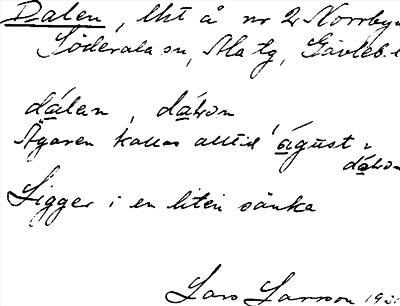 Dalen, lht å nr 2 Norrbyn
Söderala sn, Ala tg, Gävleb. l
dálan, dáḷon
Ägaren kallas alltid águst i
dáḷon
Ligger i en liten sänka
Lars Larsson 193